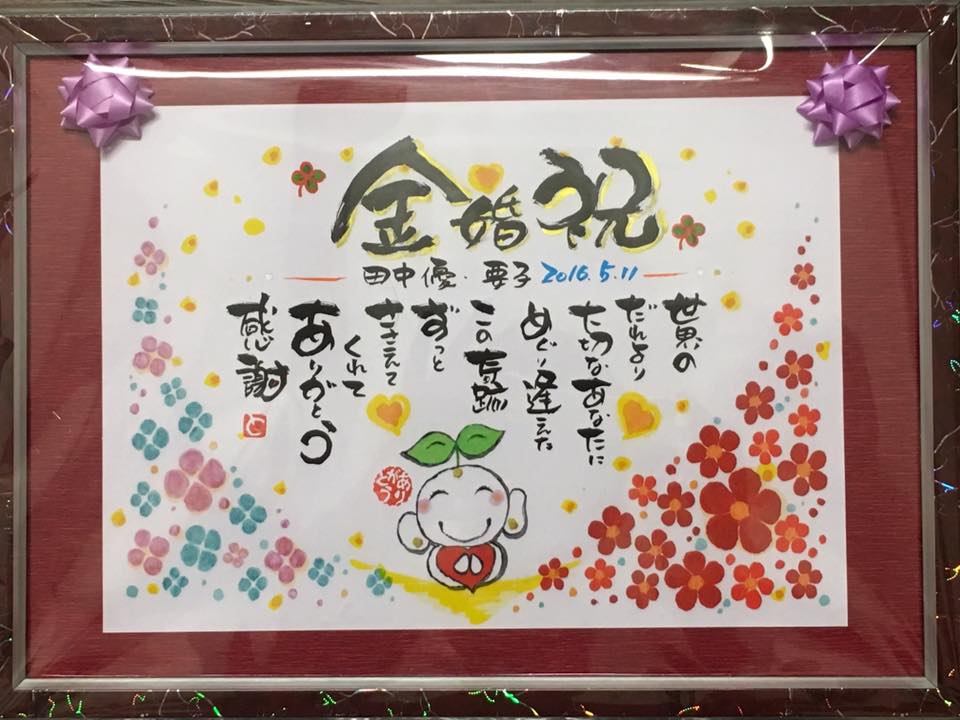 金婚祝
田中優・要子 2016.5.11
世界の
だれより
大切なあなたに
めぐり逢えた
この奇跡
ずっと
ささえて
くれて
ありがとう
感謝
ありがとう
と